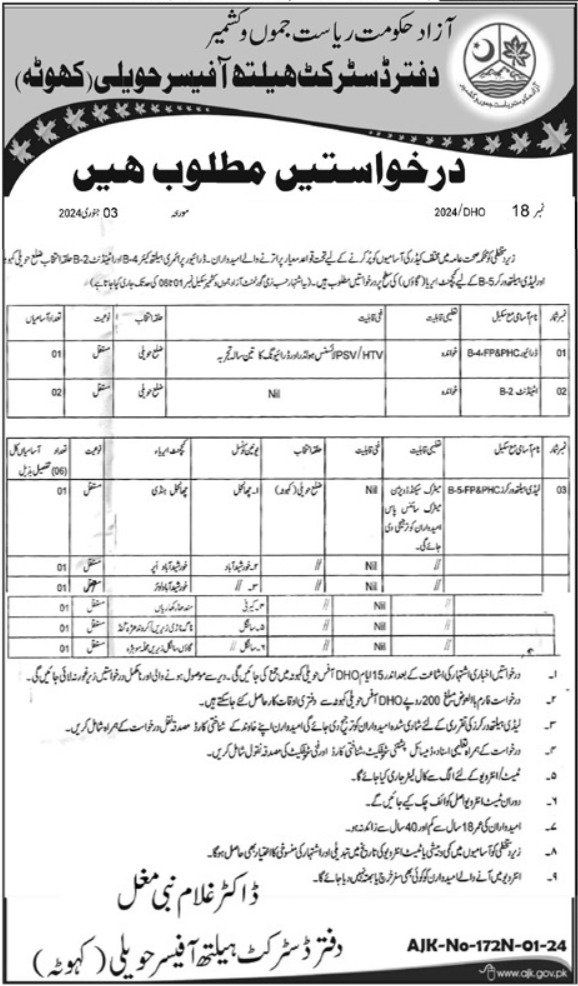 آزاد حکومت ریاست جموں و کشمیر
دفتر ڈسٹرکٹ ہیلتھ آفیسر حویلی (کہوٹہ)
درخواستیں مطلوب ھیں
نمبر 18 /DHO/2024 مورخہ 03 جنوری 2024
زیر دستخطی کو محکمہ صحت عامہ میں مختلف کیڈر کی آسامیوں کو پُر کرنے کے لیے تحت قواعد معیار پر اترنے والے امیدواران۔ ڈرائیور پرائمری ہیلتھ کیئر B-4 اور اٹینڈنٹ B-2 حلقہ انتخاب ضلع حویلی کہوٹہ
اور لیڈی ہیلتھ ورکر B-5 کے لیے کیچمنٹ ایریا (گاؤں) کی سطح پر درخواستیں مطلوب ہیں۔ (یہ اشتہار حسب زمیں گورنمنٹ آزاد جموں و کشمیر سکیل نمبر 01 تا 06 کی حد تک جاری کیا جاتا ہے)
نمبر شمار نام آسامی مع سکیل تعلیمی قابلیت فنی قابلیت حلقہ انتخاب نوعیت تعداد آسامیاں
01 ڈرائیور B-4-FP&PHC خواندہ PSV/HTV لائسنس ہولڈر اور ڈرائیونگ کا تین سالہ تجربہ ضلع حویلی مستقل 01
02 اٹینڈنٹ B-2 خواندہ Nil ضلع حویلی مستقل 02
نمبر شمار نام آسامی مع سکیل تعلیمی قابلیت فنی قابلیت حلقہ انتخاب یونین کونسل کیچمنٹ ایریاء نوعیت تعداد آسامیاں کل (06) تفصیل بذیل
03 لیڈی ہیلتھ ورکرز B-5-FP&PHC میٹرک سیکنڈ ڈویژن میٹرک سائنس پاس امیدواران کو ترجیح دی جائے گی۔ Nil ضلع حویلی (کہوٹہ) ۱۔ چھانجل چھانجل ہنڈی مستقل 01
// Nil // ۲۔ خورشید آباد خورشید آباد اَپر مستقل 01
// Nil // ۳۔ // خورشید آباد لوئر مستقل 01
// Nil // ۴۔ کیرنی مستقل 01
// Nil // ۵۔ سانگل مستقل 01
// Nil // ۶۔ سانگل مستقل 01
۱۔ درخواستیں اخباری اشتہار کی اشاعت کے بعد اندر 15 ایام DHO آفس حویلی کہوٹہ میں جمع کی جائیں گی۔ دیر سے موصول ہونے والی اور نامکمل درخواستیں زیر غور نہ لائی جائیں گی۔
۲۔ درخواست فارم بالعوض مبلغ 200 روپے DHO آفس حویلی کہوٹہ سے دفتری اوقات کار حاصل کئے جا سکتے ہیں۔
۳۔ لیڈی ہیلتھ ورکرز کی تقرری کے لئے شادی شدہ امیدواران کو ترجیح دی جائے گی امیدواران اپنے خاوند کے شناختی کارڈ مصدقہ نقل درخواست کے ہمراہ شامل کریں۔
۴۔ درخواست کے ہمراہ تعلیمی اسناد، ڈومیسائل، پشتنی سرٹیفکیٹ، شناختی کارڈ اور فنی سرٹیفکیٹ کی مصدقہ نقول شامل کریں۔
۵۔ ٹیسٹ/انٹرویو کے لئے الگ سے کال لیٹر جاری کیا جائے گا۔
۶۔ دوران ٹیسٹ انٹرویو اصل کوائف چیک کیے جائیں گے۔
۷۔ امیدواران کی عمر 18 سال سے کم اور 40 سال سے زائد نہ ہو۔
۸۔ زیر دستخطی کو آسامیوں میں کمی و بیشی یا ٹیسٹ انٹرویو کی تاریخ میں تبدیلی اور اشتہار کی منسوخی کا اختیار بھی حاصل ہوگا۔
۹۔ انٹرویو میں آنے والے امیدواران کو کوئی بھی سفر خرچ یا بھتہ نہیں دیا جائے گا۔
ڈاکٹر غلام نبی مغل
دفتر ڈسٹرکٹ ہیلتھ آفیسر حویلی (کہوٹہ)
AJK-No-172N-01-24
www.ajk.gov.pk